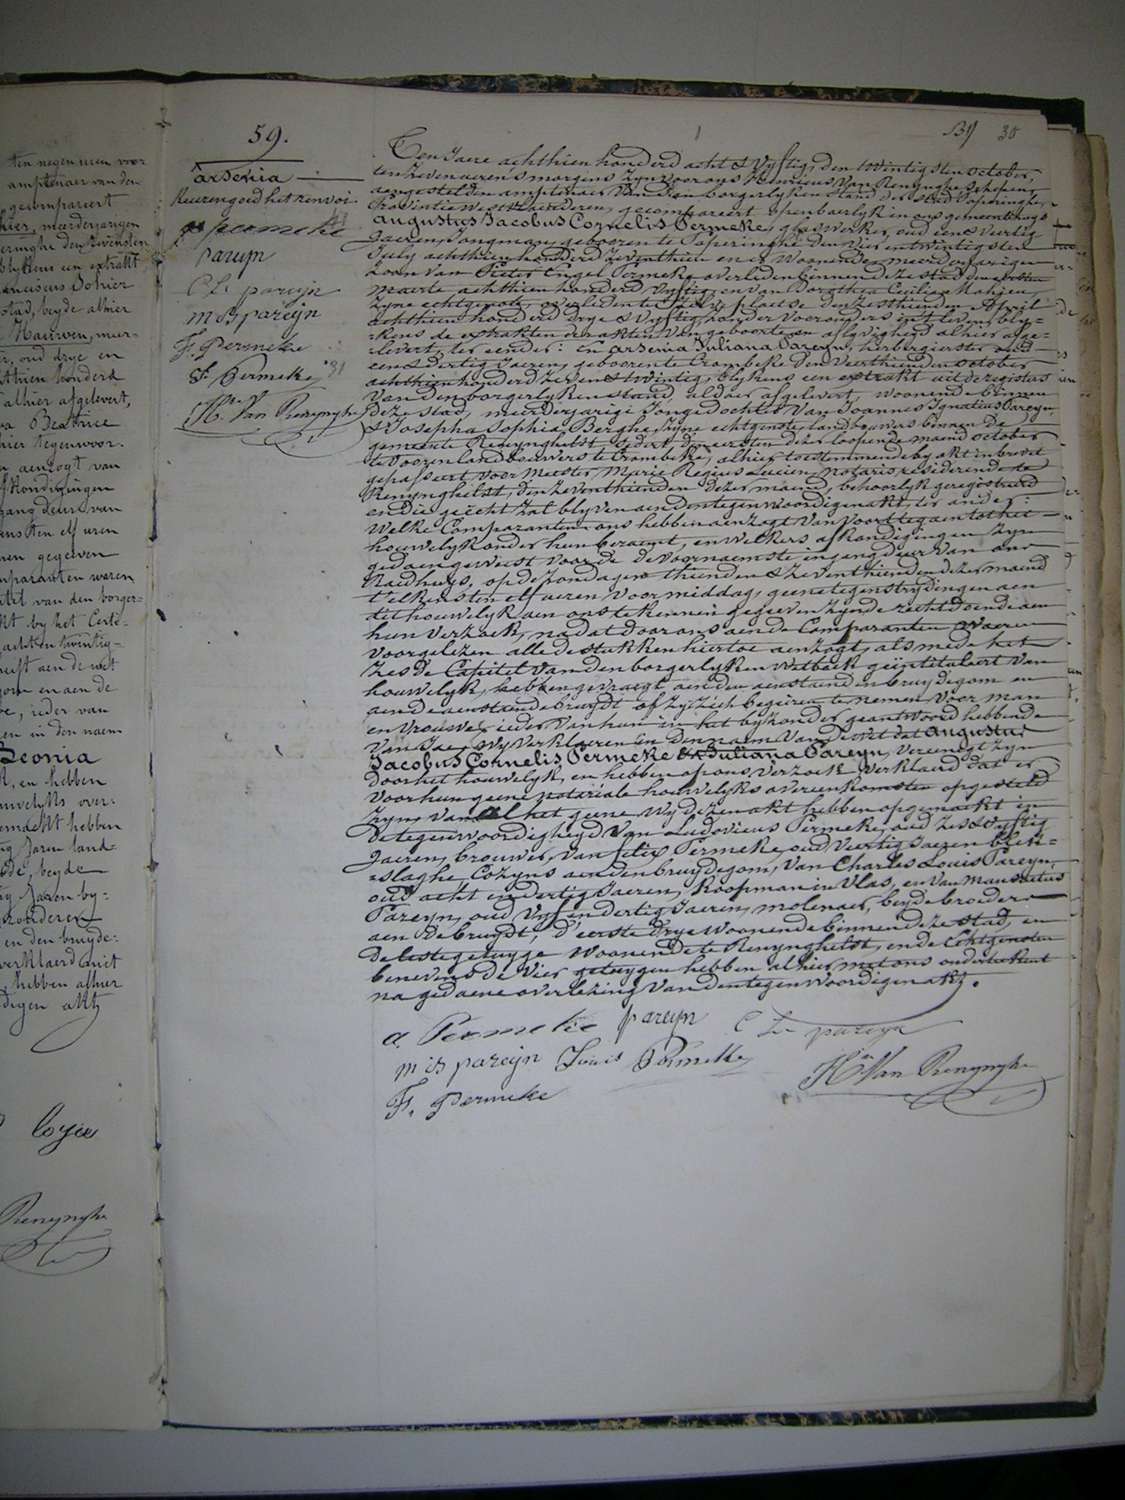 ten negen uren voor
amptenaer van den
gecompareert
hier, meerderjarigen
den zevensten
blykens een extrakt
stad, beyde alhier
oud drye en
thien honderd
alhier afgelevert,
Beatrice
hier tegenwoor-
van
kondigingen
van
elf uren
gegeven
comparanten waeren
van den borger-
by het Certi-
achtentwintig
aen de wet
en aen de
ieder van
en in den naem
Leonia
en hebben
houwelyks over-
hebben
Jaren land-
beyde
Jaren by-
en den bruyde-
verklaerd niet
hebben alhier
akt
Renynghe
59.
Arsenia
Keurengoed het renvoi
a permeke
pareyn
C L pareyn
m is pareyn
F. Permeke
L. Permeke
Hri Van Renynghe
30
Ten Jaere achthien honderd acht & Vyftig, den twintigsten october,
ten zeven aeren s'morgens zyn voor ons Henricus Van Renynghe Schepene,
aengestelden amptenaer van den borgerlyken stand der stad Poperinghe,
Provintie Westvlaenderen, gecompareert openbaerlyk in ons gemeentehuys
Augustus Jacobus Cornelis Permeke, glaswerker, oud een & veertig
Jaeren, Jongman, geboren te Poperinghe den vier en twintigsten
July achthien honderd zeventhien en er woonende meerderjarigen
zoon van Pieter Engel Permeke overleden binnen deze stad den
maerte achthien honderd vyftig, en van Dorothea Cecilia Mahieu
zyne echtgenote, overleden ter zelve plaetse den zesthienden April
achthien honderd drye & vyftig, zonder voorouders in't leven, bly-
kens de extrakten der akten van geboorte en aflyvigheid alhier afge-
levert, ter eender: En Arsenia Juliana Pareyn, herbergierster, oud
een & dertig Jaeren, geboren te Crombeke den Veerthienden october
achthien honderd zeven & twintig, blykens een extrakt uit de registers
van den borgerlyken stand, aldaer afgelevert, woonende binnen
deze stad, meerderjarige Jonge dochter van Joannes Ignatius Pareyn,
& Josepha Sophia Berghe, zyne echtgenote, landbouwers binnen de
gemeente Renynghelst, sedert den eersten dezer loopende maend october
te vooren landbouwers te Crombeke, alhier toestemmende by akt in brevet
gepasseert voor meester Marie Regius Lucien, notaris resideerende te
Renynghelst, den zeventhienden dezer maend, behoorlyk geregistreerd
en die gehecht zal blyven aen den tegenwoordigen akt, ter ander:
Welke Comparanten ons hebben aenzogt van voort te gaen tot het
houwelyk onder hun beraemt, en welkers afkondigingen zyn
gedaen geweest voor de voornaemste ingangdeur van ons
Raedhuys, op de zondagen thienden & zeventhienden dezer maend
t'elkens ten elf aeren voor middag, geene tegenstrydingen aen
dit houwelyk aen ons te kennen gegeven zynde recht doende aen
hun verzoek, na dat door ons aen de Comparanten waeren
voorgelezen alle de stukken hiertoe aenzogt, als mede het
zesde Capitel van den borgerlyken wetboek geintituleert van
houwelyk, hebben gevraegt aen den aenstaenden bruydegom en
aen de aenstaende bruydt of zy zich begeiren te nemen voor man
en vrouwe; ieder van hun in het byzonder geantwoord hebbende
van Ja, Wy verklaeren in den naem van de wet dat Augustus
Jacobus Cornelis Permeke & Juliana Pareyn, vereenigt zyn
door het houwelyk, en hebben op ons verzoek verklaerd dat er
voor hun geene notariale houwelyks overeenkomsten opgesteld
zyn, van al het geene wy dezen akt hebben opgemaekt in
de tegenwoordigheyd van Ludovicus Permeke, oud zes & vyftig
Jaeren, brouwer, van felix Permeke, oud veertig Jaeren blek-
slaghe, Cozyns aen den bruydegom, van Charles Louis Pareyn,
oud acht en dertig Jaeren, koopman in vlas, en van Mansuetus
Pareyn, oud vyf en dertig Jaeren, molenaer, beyde broeders
aen de bruydt, d'eerste drye woonende binnen deze stad, en
de leste getuyge woonende te Renynghelst, en de echtgenoten
benevens de vier getuygen hebben alhier met ons onderteekent
na gedaene overlezing van den tegenwoordigen akt.
a. Permeke pareyn C L pareyn
m is pareyn Louis Permeke
Hri Van Renynghe
F. Permeke